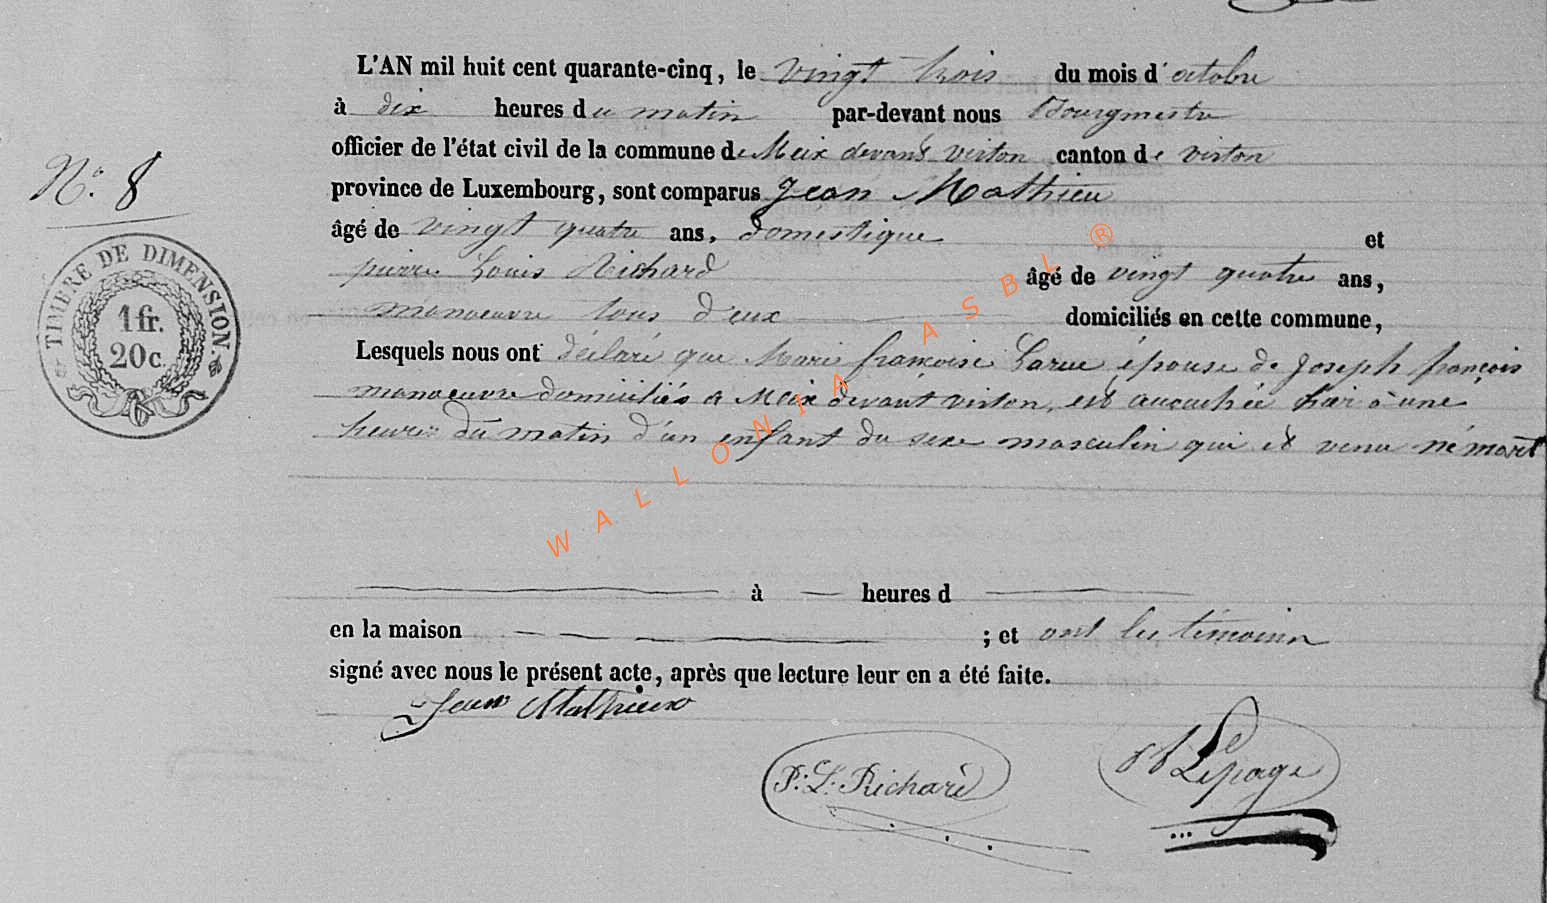 L'AN mil huit cent quarante-cinq, le vingt trois du mois d'octobre
à dix heures du matin par-devant nous Bourgmestre
officier de l'état civil de la commune de Meix devant virton canton de virton
province de Luxembourg, sont comparus Jean Mathieu
âgé de vingt quatre ans, domestique et
pierre Louis Richard âgé de vingt quatre ans,
manoeuvre tous deux domiciliés en cette commune,
Lesquels nous ont déclaré que Marie françoise Larue épouse de Joseph françois
manoeuvre domiciliés a Meix devant virton, est accouchée hier à une
heure du matin d'un enfant du sexe masculin qui est venu né mort
à heures d
en la maison ; et ont les témoins
signé avec nous le présent acte, après que lecture leur en a été faite.
Jean Mathieux
P. L. Richard
Lepage
N.° 8
TIMBRE DE DIMENSION
1 fr.
20 c.
WALLONIA ASBL ®